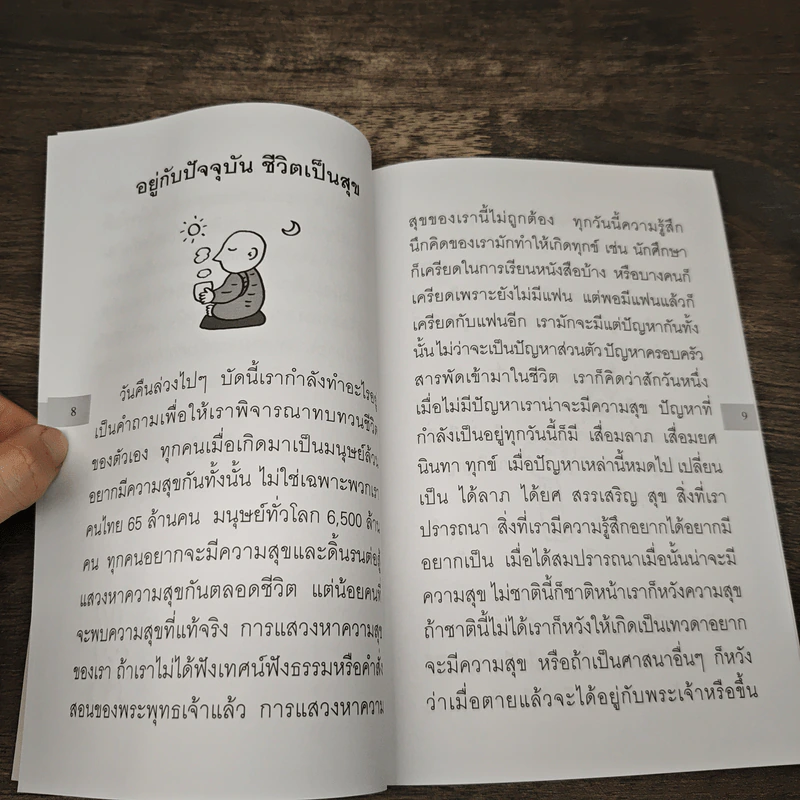 อยู่กับปัจจุบัน ชีวิตเป็นสุข
วันคืนล่วงไปๆ บัดนี้เรากำลังทำอะไรอยู่
เป็นคำถามเพื่อให้เราพิจารณาทบทวนชีวิต
ของตัวเอง ทุกคนเมื่อเกิดมาเป็นมนุษย์ล้วน
อยากมีความสุขกันทั้งนั้น ไม่ใช่เฉพาะพวกเรา
คนไทย 65 ล้านคน มนุษย์ทั่วโลก 6,500 ล้าน
คน ทุกคนอยากจะมีความสุขและดิ้นรนต่อสู้
แสวงหาความสุขกันตลอดชีวิต แต่น้อยคนที่
จะพบความสุขที่แท้จริง การแสวงหาความสุข
ของเรา ถ้าเราไม่ได้ฟังเทศน์ฟังธรรมหรือคำสั่ง
สอนของพระพุทธเจ้าแล้ว การแสวงหาความ
8
สุขของเรานี้ไม่ถูกต้อง ทุกวันนี้ความรู้สึก
นึกคิดของเรามักทำให้เกิดทุกข์ เช่น นักศึกษา
ก็เครียดในการเรียนหนังสือบ้าง หรือบางคนก็
เครียดเพราะยังไม่มีแฟน แต่พอมีแฟนแล้วก็
เครียดกับแฟนอีก เรามักจะมีแต่ปัญหากันทั้ง
นั้น ไม่ว่าจะเป็นปัญหาส่วนตัว ปัญหาครอบครัว
สารพัดเข้ามาในชีวิต เราก็คิดว่าสักวันหนึ่ง
เมื่อไม่มีปัญหาเราน่าจะมีความสุข ปัญหาที่
กำลังเป็นอยู่ทุกวันนี้ก็มี เสื่อมลาภ เสื่อมยศ
นินทา ทุกข์ เมื่อปัญหาเหล่านี้หมดไป เปลี่ยน
เป็น ได้ลาภ ได้ยศ สรรเสริญ สุข สิ่งที่เรา
ปรารถนา สิ่งที่เรามีความรู้สึกอยากได้อยากมี
อยากเป็น เมื่อได้สมปรารถนาเมื่อนั้นน่าจะมี
ความสุข ไม่ชาตินี้ก็ชาติหน้าเราก็หวังความสุข
ถ้าชาตินี้ไม่ได้เราก็หวังให้เกิดเป็นเทวดาอยาก
จะมีความสุข หรือถ้าเป็นศาสนาอื่นๆ ก็หวัง
ว่าเมื่อตายแล้วจะได้อยู่กับพระเจ้าหรือขึ้น
9